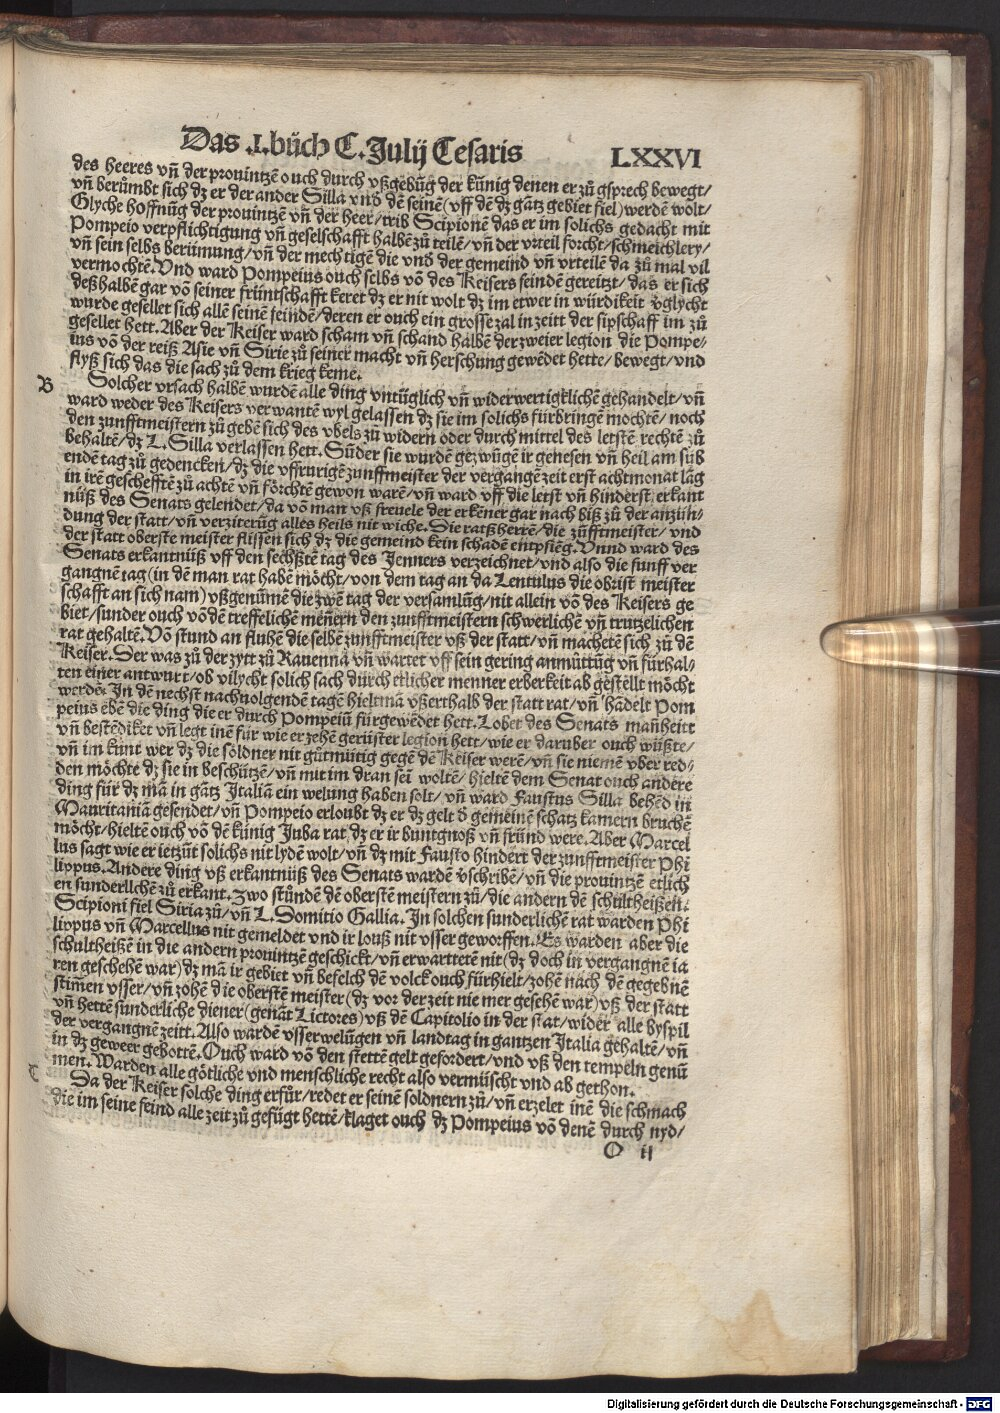 Das .I. bůch C. Julij Cesaris LXXVI
des heeres vñ der prouintzē ouch durch vßgebūg der künig denen er zů gsprech bewegt/
vñ berůmbt sich dz er der ander Silla vnd̄ dē seinē (vff dē dz gātz gebiet fiel) werdē wolt/
Glyche hoffnūg der prouintzē vñ der heer/ trib Scipionē das er im solichs gedacht mit
Pompeio verpflichtigung vñ geselschafft halbē zů teilē/ vñ der vrteil forcht/ schmeichlery/
vñ sein selbs berümung/ vñ der mechtigē die vnd̄ der gemeind vñ vrteilē da zů mal vil
vermochtē. Vnd ward Pompeius ouch selbs vō des Keisers feindē gereitzt/ das er sich
deßhalbē gar vō seiner früntschafft keret dz er nit wolt dz im etwer in würdikeit v̄glycht
wurde gesellet sich allē seinē feindē/ deren er ouch ein grosse zal in zeitt der sipschaff im zů
gesellet hett. Aber der Keiser ward scham vñ schand halbē der zweier legion die Pompe-
ius vō der reiß Asie vñ Sirie zů seiner macht vñ herschung gewēdet hette/ bewegt/ vnd
flyß sich das die sach zů dem krieg keme.
B Solcher vrsach halbē wurdē alle ding vntüglich vñ widerwertigklichē gehandelt/ vñ
ward weder des Keisers verwantē wyl gelassen dz sie im solichs fürbringē mochtē/ noch
den zunfftmeistern zů gebē sich des vbels zů widern oder durch mittel des letstē rechtē zů
behaltē/ dz L. Silla verlassen hett. Sūder sie wurdē gezwūgē ir genesen vñ heil am sūb
endē tag zů gedencken/ dz die vffrurigē zunffmeister der vergangē zeit erst achtmonat lāg
in irē geschefftē zů achtē vñ förchtē gewon warē/ vñ ward vff die letst vñ hinderst erkant
nüß des Senats gelendet/ da vō man vß freuele der erkēner gar nach biß zů der anzün-
dung der statt/ vñ verziterūg alles heils nit wiche. Die ratßherrē/ die zūfftmeister/ vnd
der statt oberste meister flissen sich dz die gemeind kein schadē entpfieng. Vnnd ward des
Senats erkantnüß vff den sechßtē tag des Jenners verzeichnet/ vnd also die funff ver
gangnē tag (in dē man rat habē möcht/ von dem tag an da Lentulus die obrist meister
schafft an sich nam) vßgenūmē die zwē tag der versamlūg/ nit allein vō des Keisers ge
biet/ sunder ouch vō dē treffelichē mēnern den zunfftmeistern schwerlichē vñ trutzelichen
rat gehaltē. Vō stund an fluhē die selbē zunfftmeister vß der statt/ vñ machetē sich zů dē
Keiser. Der was zů der zytt zů Rauenna vñ wartet vff sein gering anmůttūg vñ fürhal-
ten einer antwurt/ ob vilycht solich sach durch etlicher menner erberkeit ab gestellt möcht
werdē. In dē nechst nachuolgendē tagē hielt mā vßerthalb der statt rat/ vñ hādelt Pom
peius ebē die ding die er durch Pompeiū fürgewēdet hett. Lobet des Senats mañheitt
vñ bestēdiket vñ legt inē für wie er zehē gerüster legion hett/ wie er daruber ouch wüßte/
vñ im künt wer dz die söldner nit gůtmütig gegē dē Keiser werē/ vñ sie niemē vber red-
den möchte dz sie in beschützē/ vñ mit im dran sei woltē/ hieltē dem Senat ouch andere
ding für dz mā in gātz Italiā ein welung haben solt/ vñ ward Faustus Silla behēd in
Mauritaniā gesendet/ vñ Pompeio erloubt dz er dz gelt d̄ gemeinē schatz kamern bruchē
möcht/ hieltē ouch vō dē künig Juba rat dz er ir buntgnoß vñ fründ were. Aber Marcel
lus sagt wie er ietzūt solichs nit lydē wolt/ vñ dz mit Fausto hindert der zunfftmeister Phi
lippus. Andere ding vß erkantnüß des Senats wardē v̄schribē/ vñ die prouintzē etlich
en sunderlichē zů erkant. Zwo stůndē dē oberstē meistern zů/ die andern dē schultheißen.
Scipioni fiel Siria zů/ vñ L. Domitio Gallia. In solchen sunderlichē rat warden Phi
lippus vñ Marcellus nit gemeldet vnd ir louß nit vsser geworffen. Es warden aber die
schultheißē in die andern prouintzē geschickt/ vñ erwarttetē nit (dz doch in vergangnē ia
ren geschehē war) dz mā ir gebiet vñ befelch dē volck ouch fürhielt/ zohē nach dē gegebnē
stim̄en vsser/ vñ zohē die oberstē meister (dz vor der zeit nie mer gesehē war) vß der statt
vñ hettē sunderliche diener (genāt Lictores) vß dē Capitolio in der stat/ wider alle byspil
der vergangnē zeitt. Also wardē vsserwelūgen vñ landtag in gantzen Italia gehaltē/ vñ
in dz geweer gebottē. Ouch ward vō den stettē gelt gefordert/ vnd vß den tempeln genū
men. Warden alle götliche vnd menschliche recht also vermüscht vnd ab gethon.
C Da der Keiser solche ding erfůr/ redet er seinē soldnern zů/ vñ erzelet inē die schmach
die im seine feind alle zeit zů gefügt hettē/ klaget ouch dz Pompeius vō denē durch nyd/
O ii
Digitalisierung gefördert durch die Deutsche Forschungsgemeinschaft - DFG